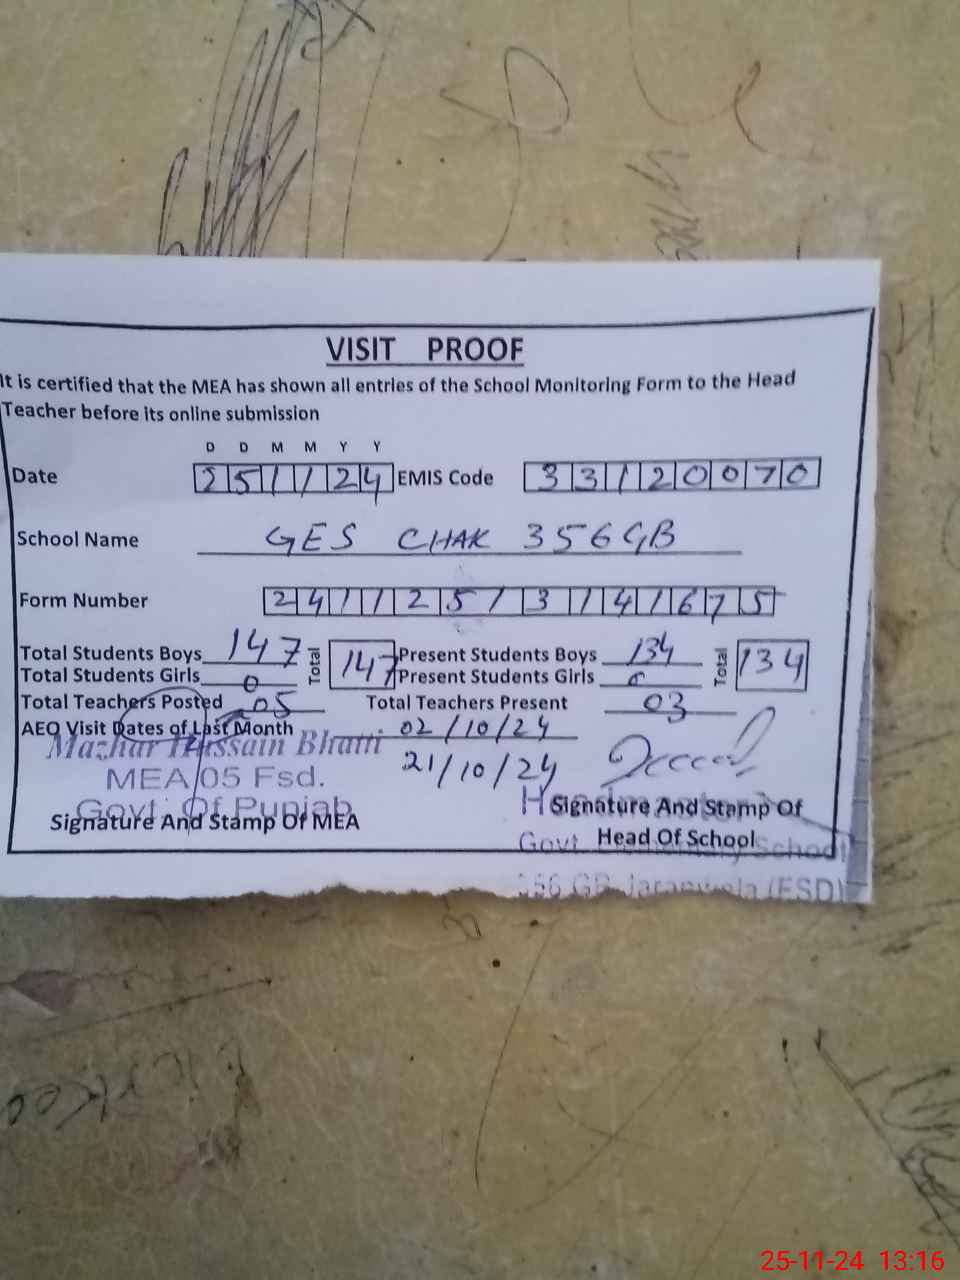 VISIT PROOF
It is certified that the MEA has shown all entries of the School Monitoring Form to the Head
Teacher before its online submission
D D M M Y Y
Date 251124 EMIS Code 33120070
School Name GES CHAK 356 GB
Form Number 2411251314 1675
Total Students Boys 147 Total 147 Present Students Boys 134 Total 134
Total Students Girls 0 Present Students Girls 0
Total Teachers Posted 05 Total Teachers Present 03
AEO Visit Dates of Last Month 02/10/24
Mazhar Hussain Bhatti
21/10/24
MEA/05 Fsd.
Govt. Of Punjab
Signature And Stamp Of MEA
Signature And Stamp Of
Head Of School
Govt. Elementary School
356 GB Jaranwala (FSD)
25-11-24 13:16